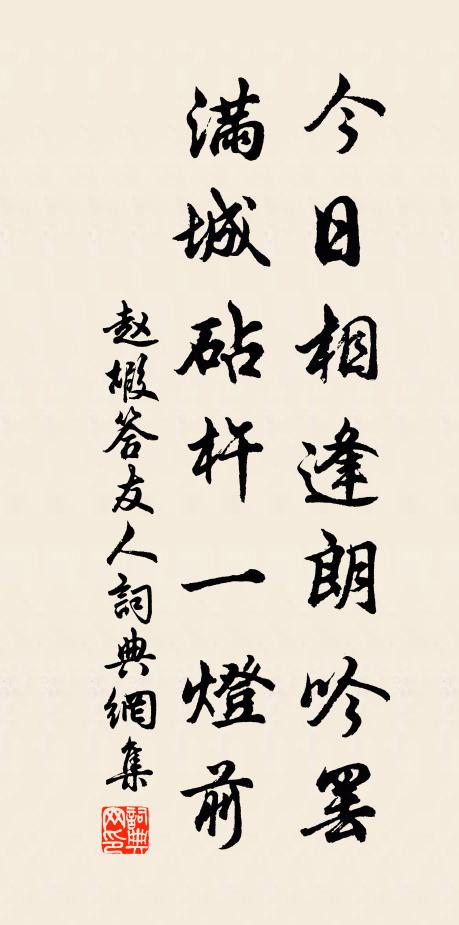 今日相逢朗吟罢
满城砧杵一燈前
赵嘏答友人詞典網集
詞典网印